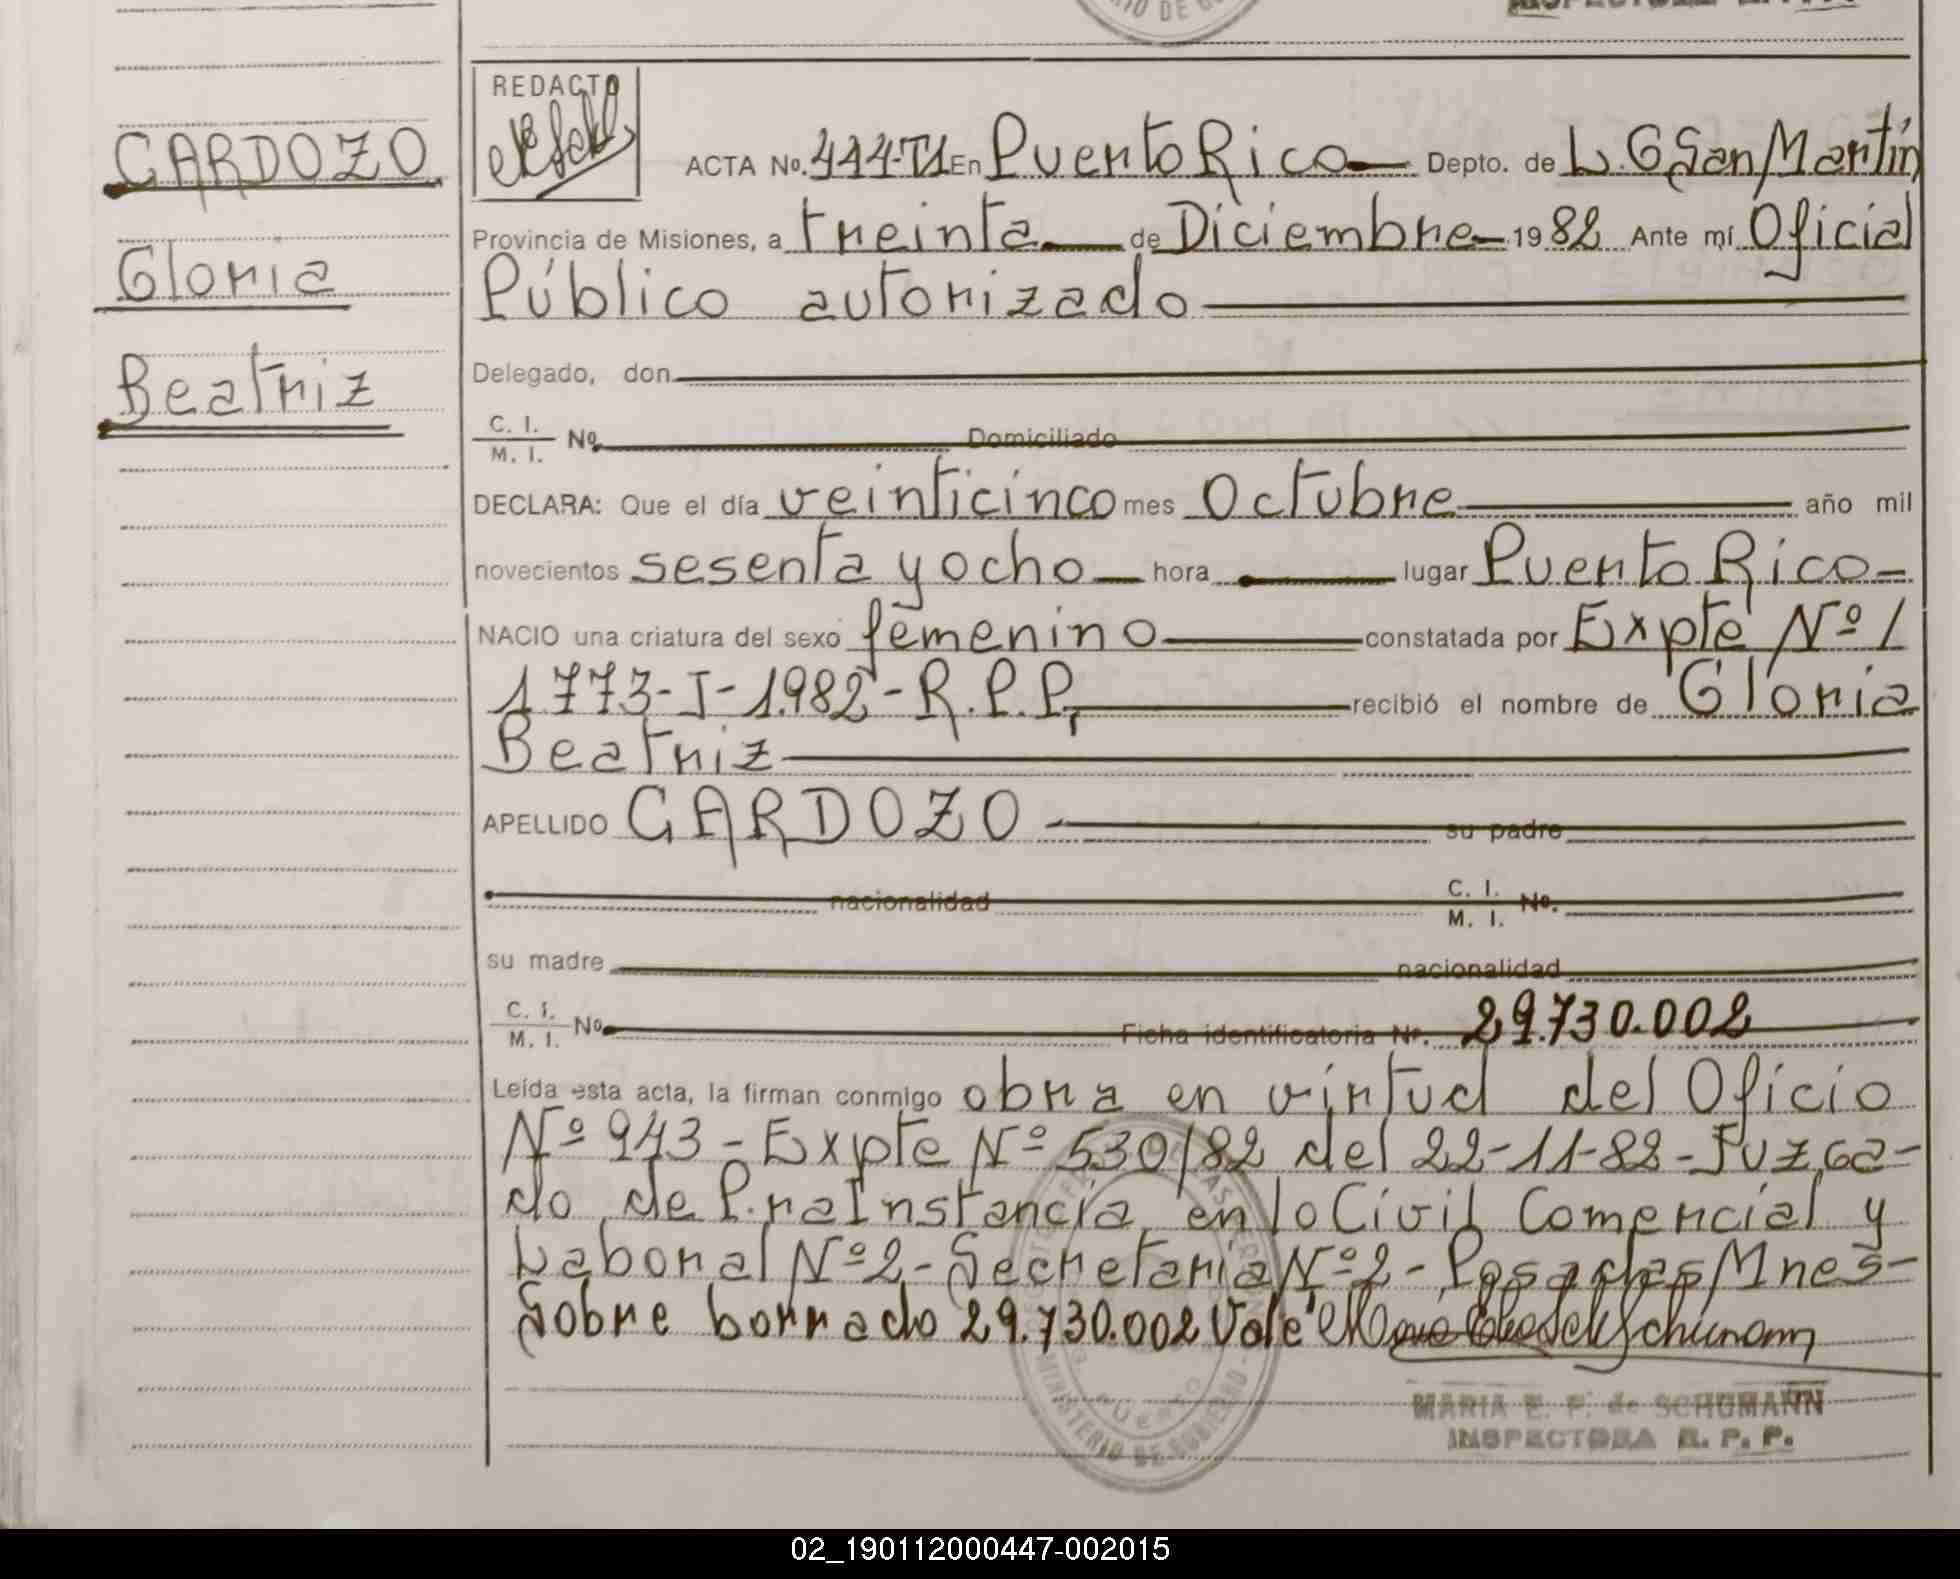 CARDOZO
Gloria
Beatriz
REDACTO
ACTA No. 444-T1 En Puerto Rico Depto. de L. G San Martín
Provincia de Misiones, a treinta de Diciembre 1982 Ante mí Oficial
Público autorizado
Delegado, don
C. I.
M. I. Nº Domiciliado
DECLARA: Que el día veinticinco mes Octubre año mil
novecientos sesenta y ocho hora lugar Puerto Rico
NACIO una criatura del sexo femenino constatada por Expte Nº 1
1773-I-1982-R.P.P. recibió el nombre de Gloria
Beatriz
APELLIDO CARDOZO su padre
nacionalidad C. I.
M. I. No.
su madre nacionalidad
C. I.
M. I. No. Ficha identificatoria Nr. 29.730.002
Leída esta acta, la firman conmigo obra en virtud del Oficio
Nº 943-Expte Nº 530/82 del 22-11-82-Juzga-
do de P.ra Instancia en lo Civil Comercial y
Laboral Nº 2-Secretaria Nº 2-Posadas Mnes-
Sobre borrado 29.730.002 Vale
MINISTERIO DE GOBIERNO
PUERTO
MARIA E. F. de SCHUMANN
INSPECTORA R. P. P.
02_190112000447-002015